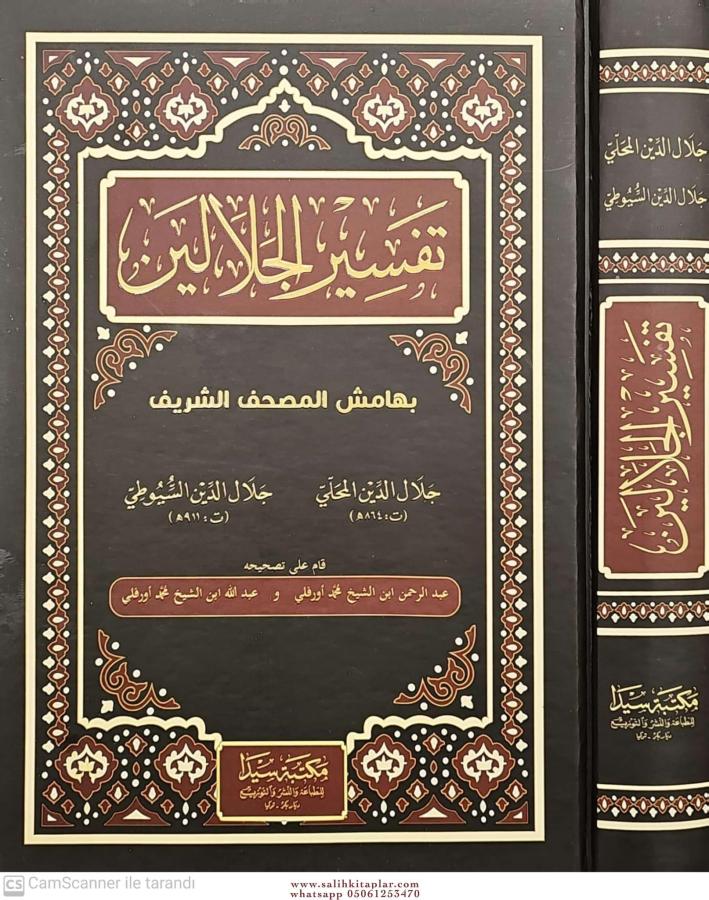 تفسير الجلالين
بهامش المصحف الشريف
جلال الدين المحلي جلال الدين السيوطي
(ت: ٨٦٤ه) (ت: ٩١١ه)
قام على تصحيحه
عبد الرحمن ابن الشيخ محمد أورفلي و عبد الله ابن الشيخ محمد أورفلي
مكتبة سيدا
للطباعة والنشر والتوزيع
ديار بكر - تركيا
جلال الدين المحلي
جلال الدين السيوطي
تفسير الجلالين
مكتبة سيدا
للطباعة والنشر والتوزيع
ديار بكر - تركيا
CS CamScanner ile tarandı
www.salihkitaplar.com
whatsapp 05061253470